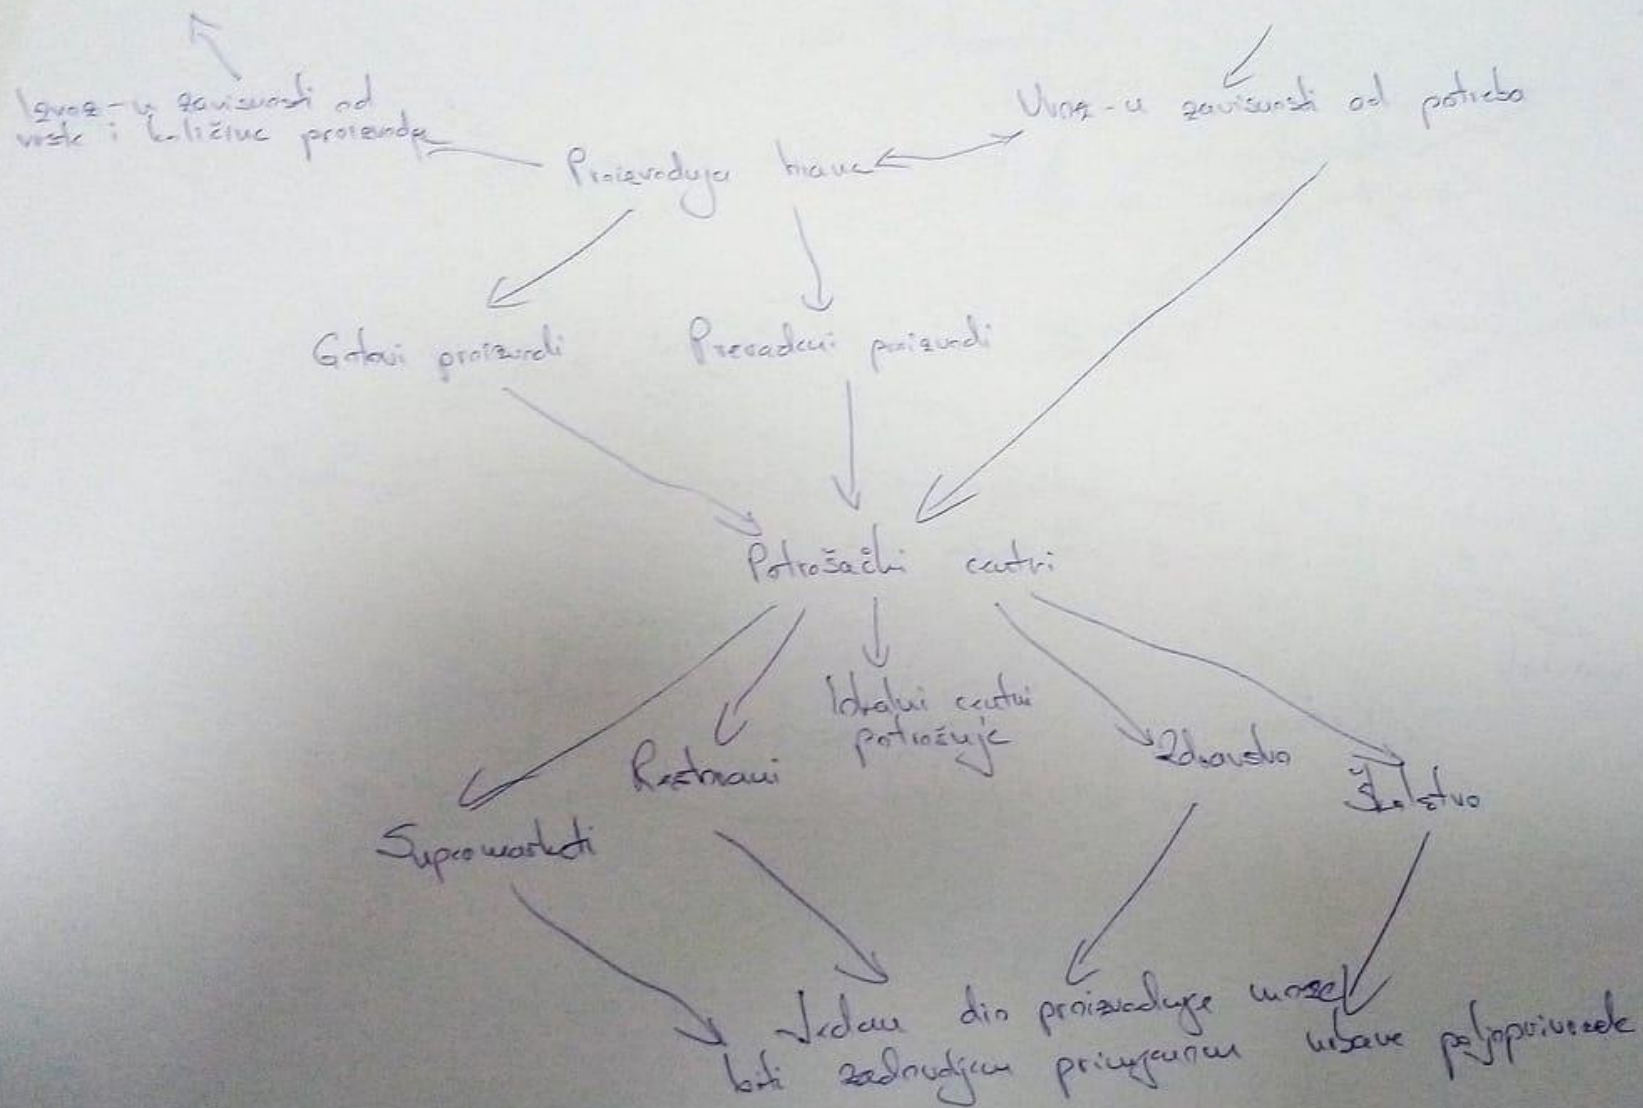 Izvoz - u zavisnosti od
vrste i količine proizvoda
Uvoz - u zavisnosti od potreba
Proizvodnja hrane
Gotovi proizvodi
Prerađeni proizvodi
Potrošački centri
centri
potrošnje
Restorani
Zdravstvo
Školstvo
Supermarketi
Jedan dio proizvodnje može
biti primjenom urbane poljoprivrede